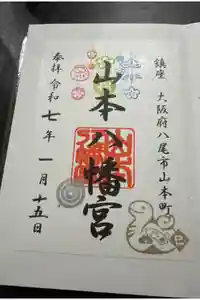 鎮座 大阪府八尾市山本町
山本八幡宮
奉拝 令和七年一月十五日
巳